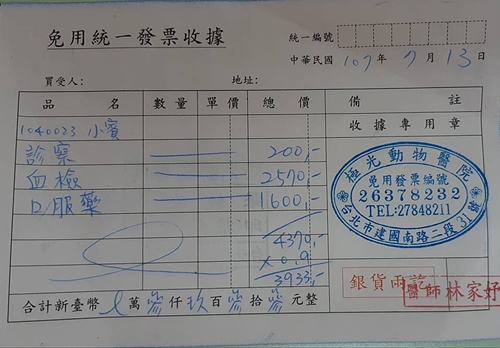 免用統一發票收據
統一編號
中華民國 107 年 7 月 13 日
買受人： 地址：
品 名 數量 單價 總價 備 註
收據專用章
1040023 小賓
診察 200,-
血檢 2570,-
口服藥 1600,-
4370,-
x 0.9
3933,-
極光動物醫院
免用發票編號
26378232
TEL:27848211
台北市建國南路二段31號
銀貨兩訖
醫師 林家妤
合計新臺幣 萬 參 仟 玖 百 參 拾 參 元整